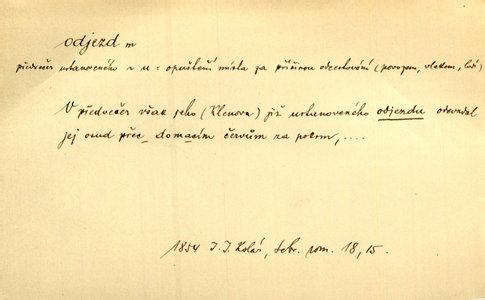 odjezd m
předvečer ustanoveného v u = opuštění místa za příčinou odcestování (povozem, vlakem, lodí)
V předvečer však jeho (Klenova) již ustanoveného odjezdu odevzdal
jej osud přec domacím červům za potm, ....
1854 J. J. Kolár, Sebr. rom. 18, 15.